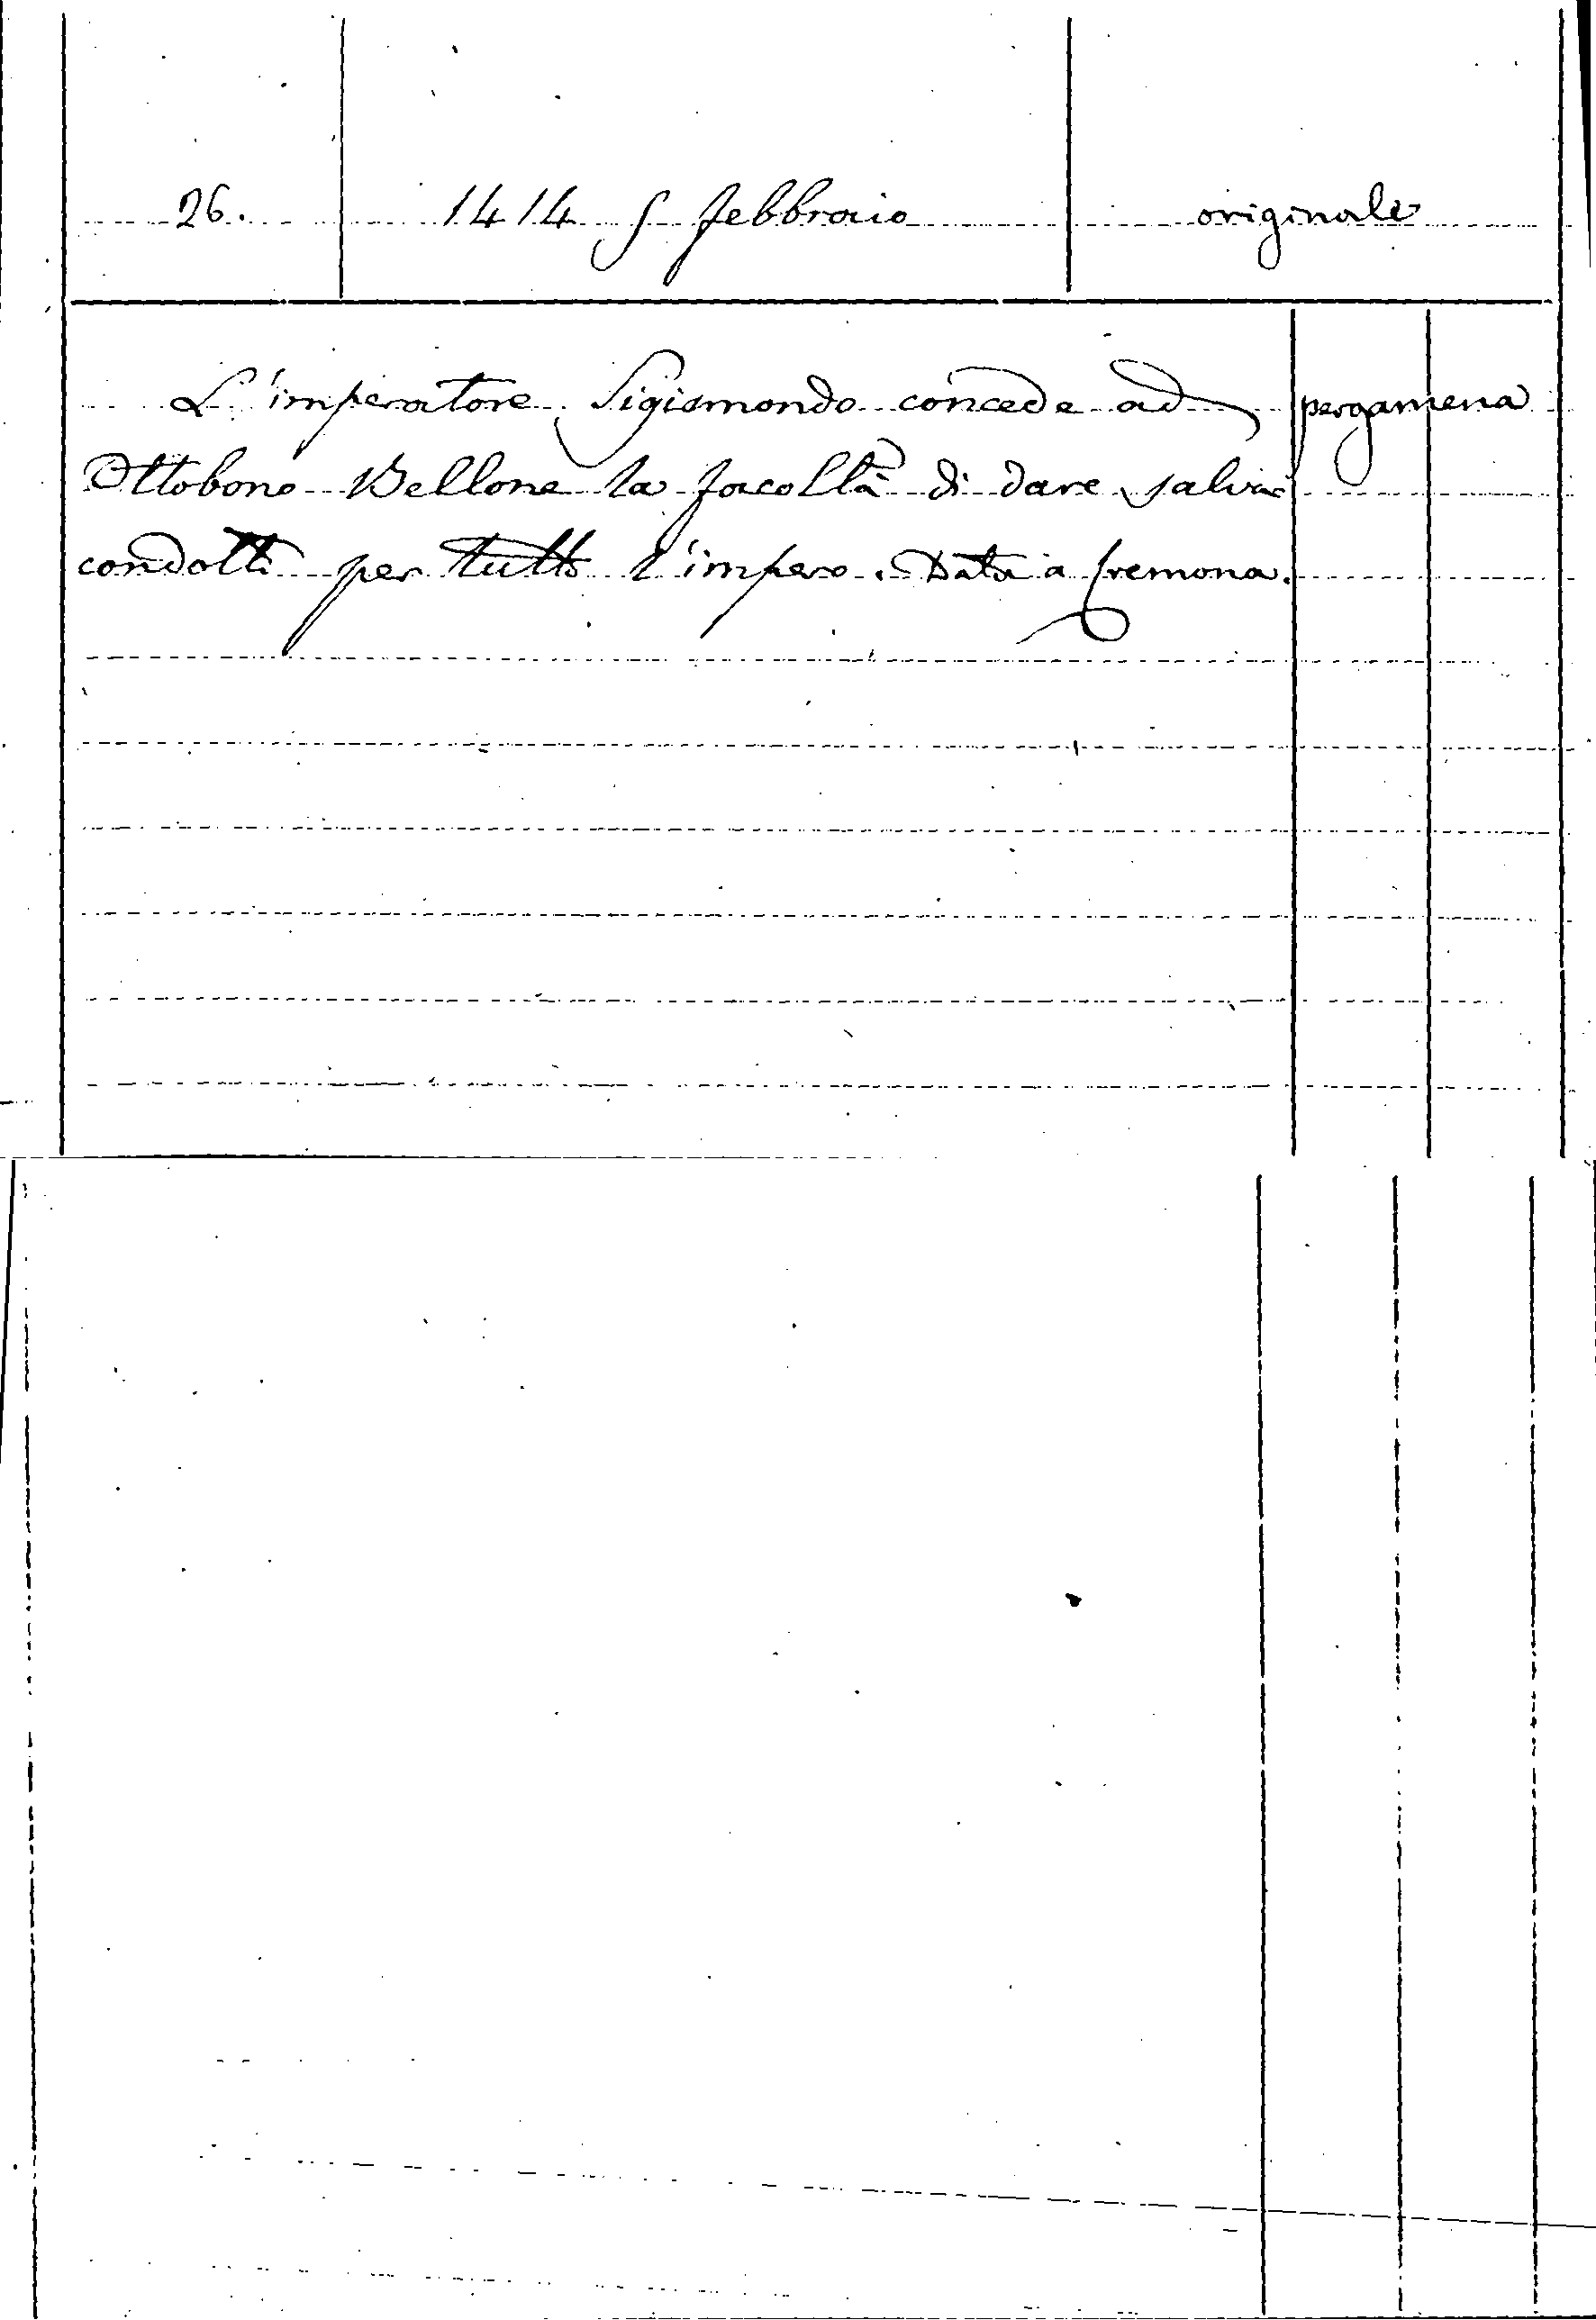 26. 1414 5 febbraio originale
L'imperatore Sigismondo concede ad pergamena
Ottobono Bellone la facoltà di dare salvi
condotti per tutto l'impero. Data a Cremona.